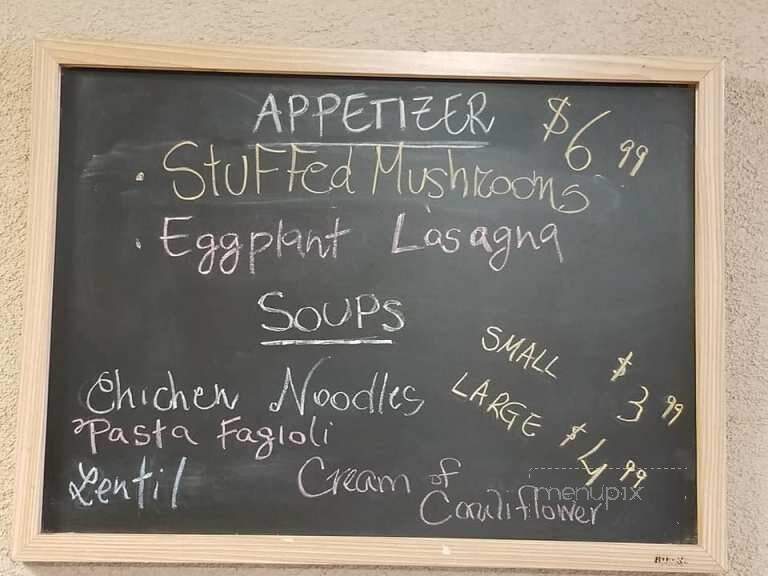 APPETIZER $6 99
• Stuffed Mushrooms
• Eggplant Lasagna
SOUPS
SMALL $3 99
LARGE $4 99
Chichen Noodles
Pasta Fagioli
Lentil
Cream of
Cauliflower
menupix